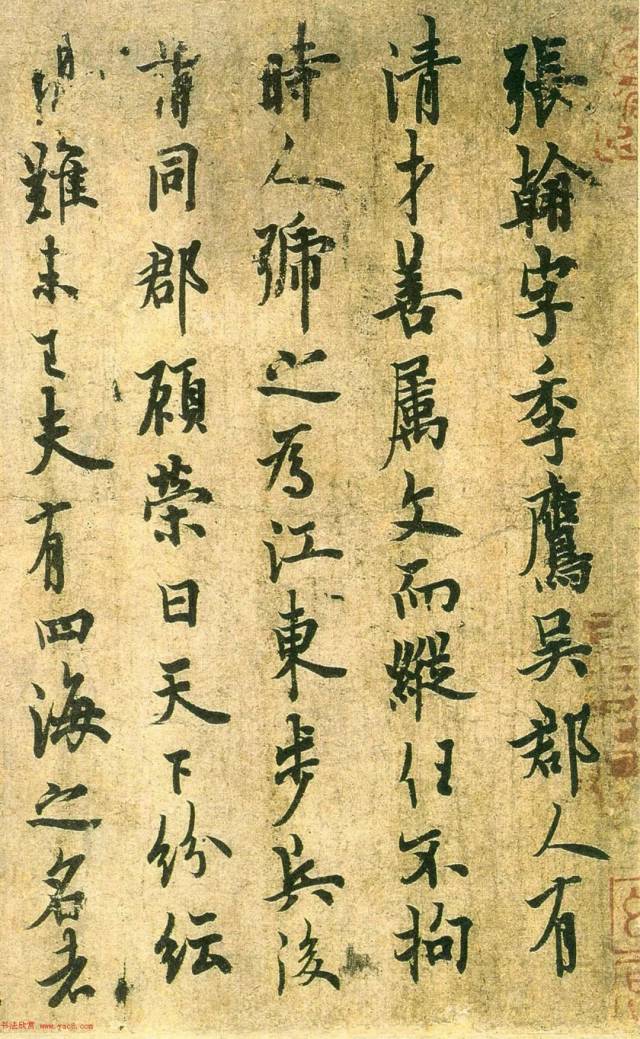 張翰字季鷹吳郡人有
清才善属文而縱任不拘
時人號之為江東步兵後
同郡顧榮曰天下紛紜
難未已夫有四海之名者
书法欣赏 www.yac8.com